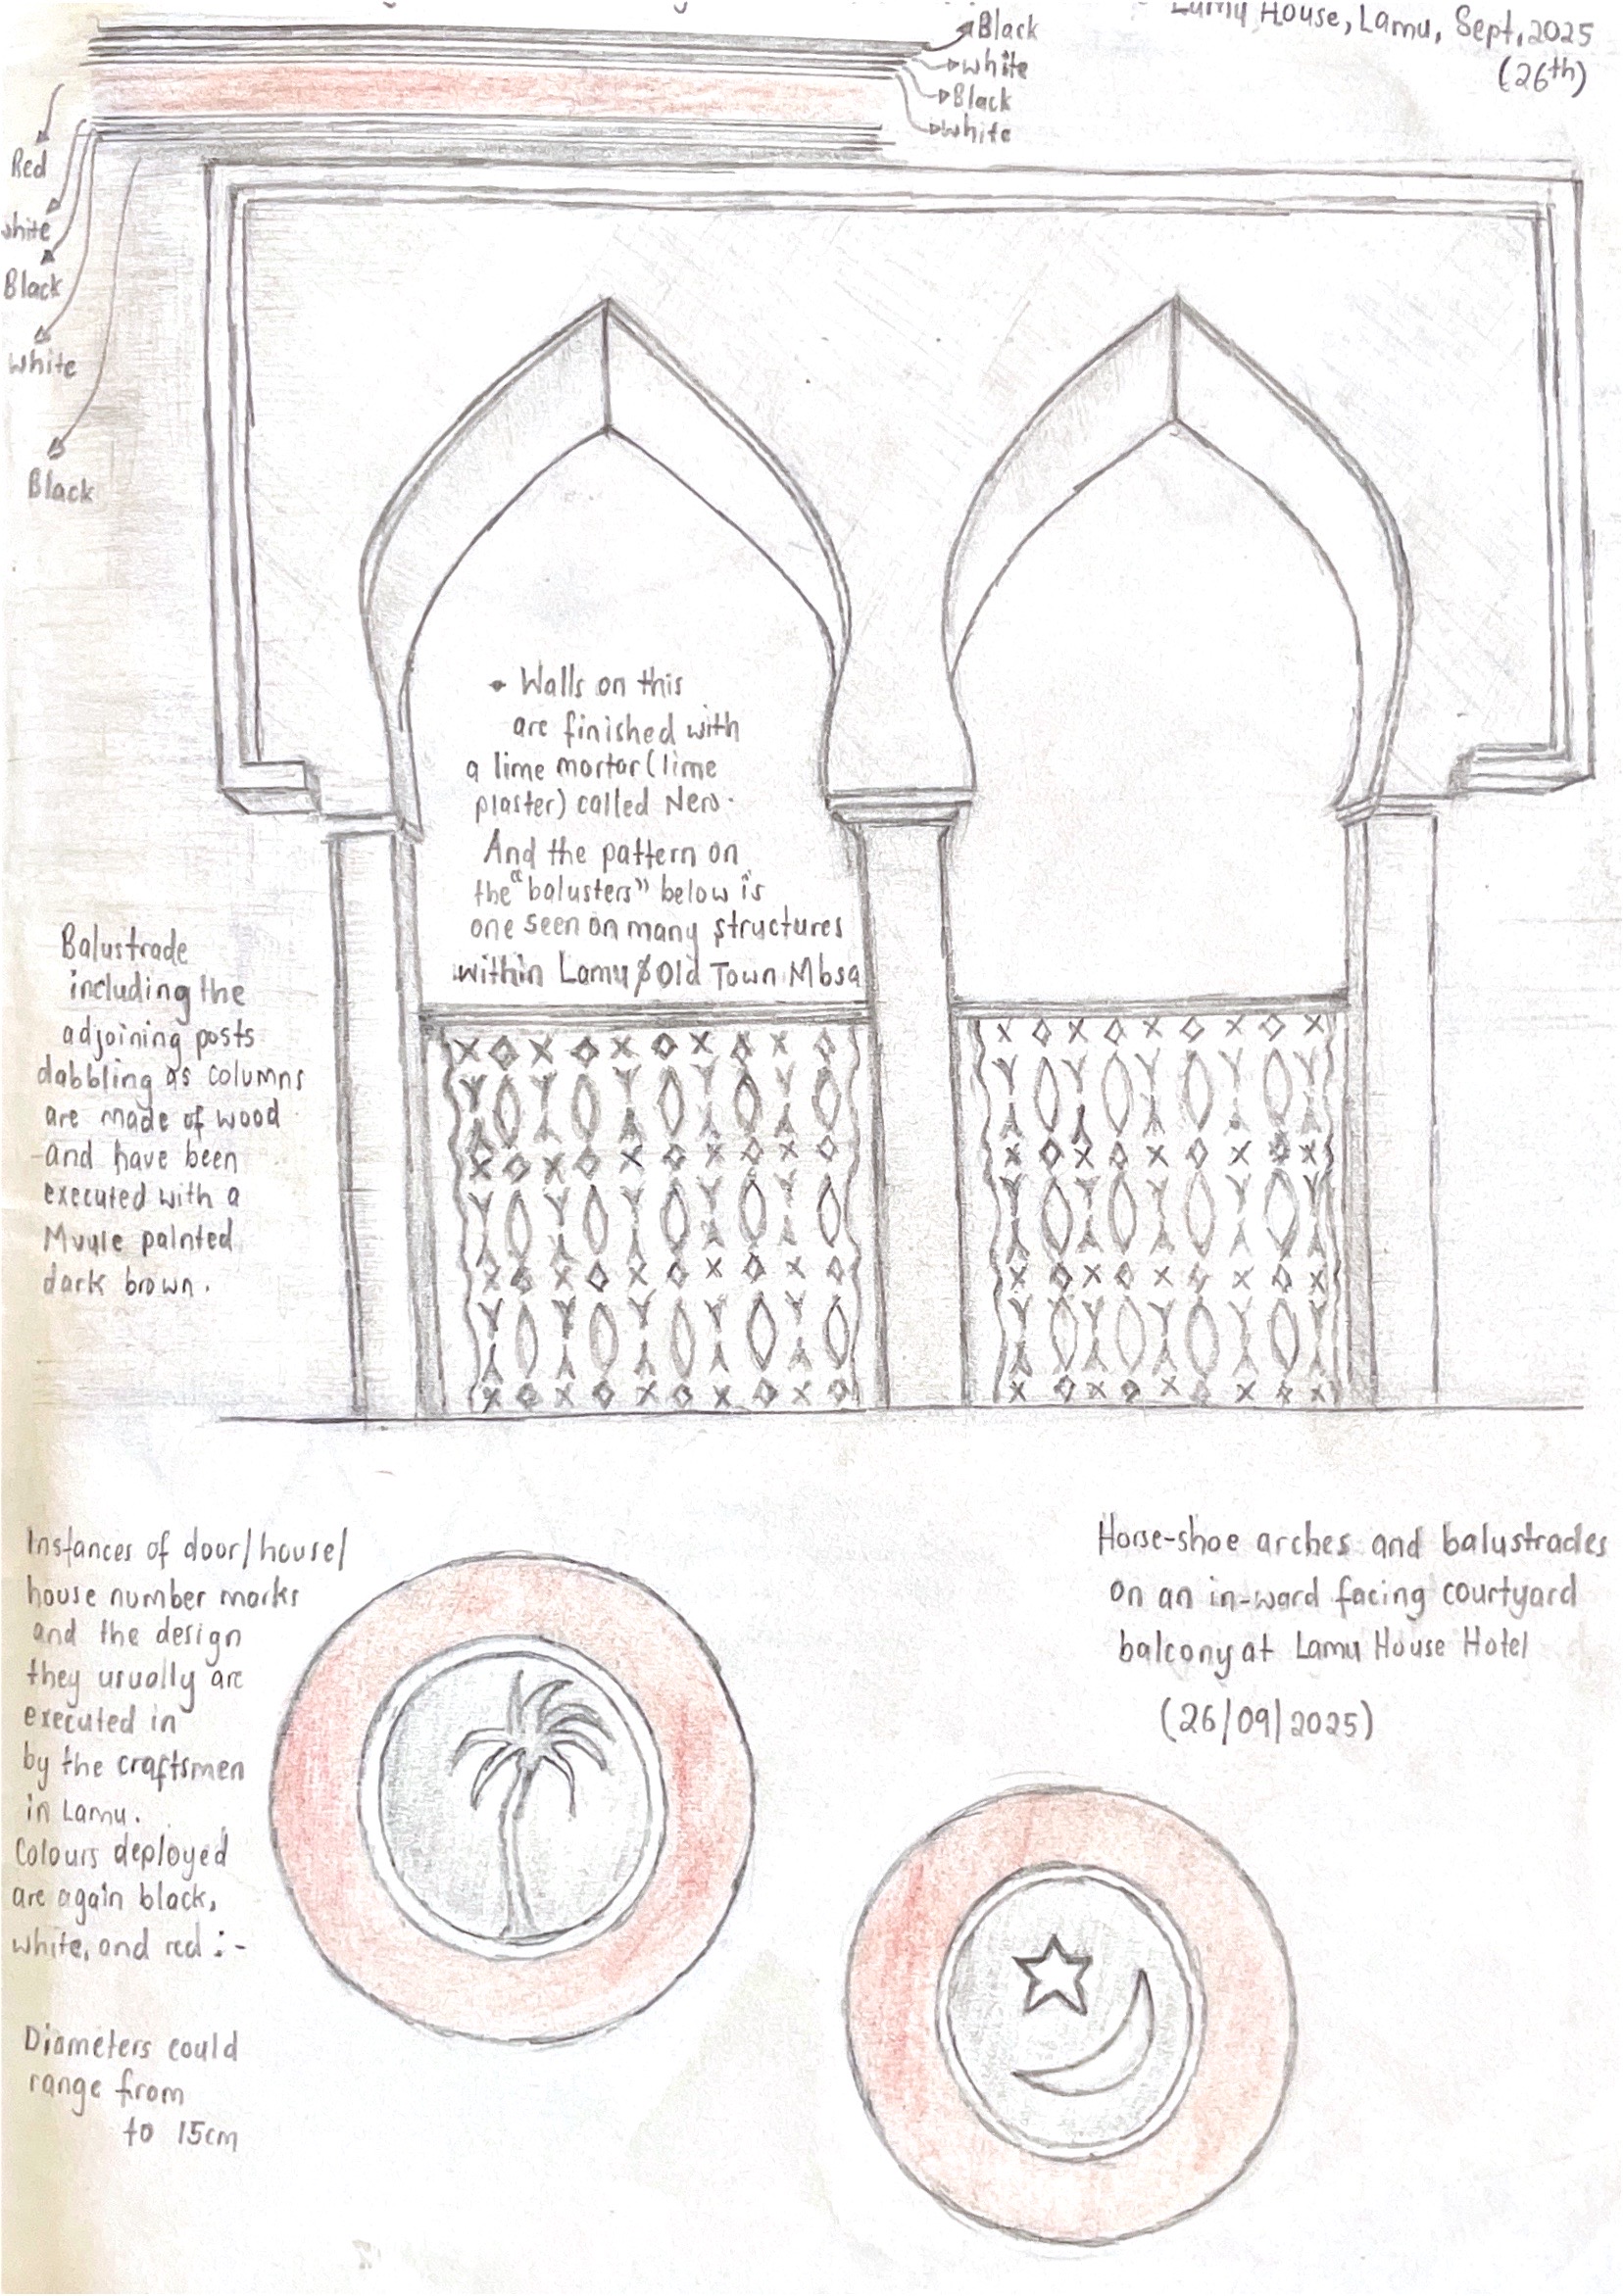 Lamu House, Lamu, Sept, 2025
(26th)
Black
White
Black
White
Red
white
Black
White
Black
Walls on this
are finished with
a lime mortar (lime
plaster) called Nero.
And the pattern on
the "balusters" below is
one seen on many structures
within Lamu & Old Town Mbsa
Balustrade
including the
adjoining posts
dabbling as columns
are made of wood
and have been
executed with a
Mvule painted
dark brown.
Instances of door/house/
house number marks
and the design
they usually are
executed in
by the craftsmen
in Lamu.
Colours deployed
are again black,
white, and red :-
Diameters could
range from
to 15cm
Horse-shoe arches and balustrades
on an in-ward facing courtyard
balcony at Lamu House Hotel
(26/09/2025)